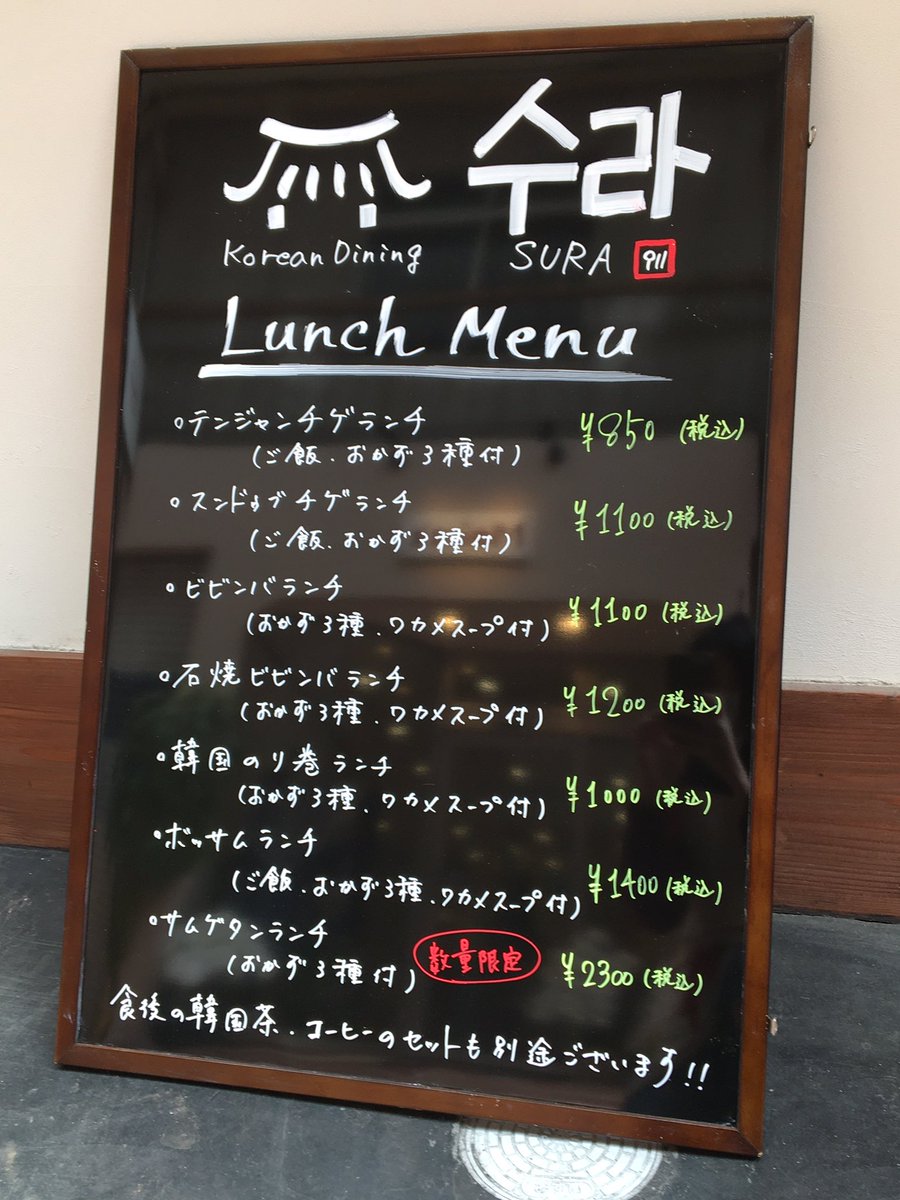 수라
Korean Dining SURA 911
Lunch Menu
・テンジャンチゲランチ ¥850 (税込)
(ご飯、おかず3種付)
・スンドゥブチゲランチ ¥1100 (税込)
(ご飯、おかず3種付)
・ビビンバランチ ¥1100 (税込)
(おかず3種、ワカメスープ付)
・石焼ビビンバランチ ¥1200 (税込)
(おかず3種、ワカメスープ付)
・韓国のり巻ランチ ¥1000 (税込)
(おかず3種、ワカメスープ付)
・ボッサムランチ ¥1400 (税込)
(ご飯、おかず3種、ワカメスープ付)
・サムゲタンランチ 数量限定 ¥2300 (税込)
(おかず3種付)
食後の韓国茶、コーヒーのセットも別途ございます!!